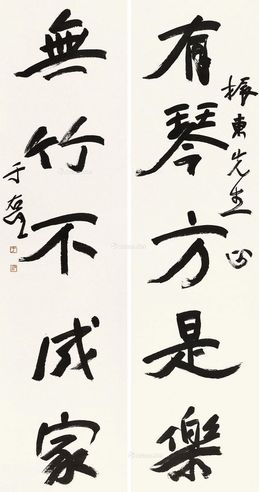 振東先生
有琴方是樂
無竹不成家
于右任